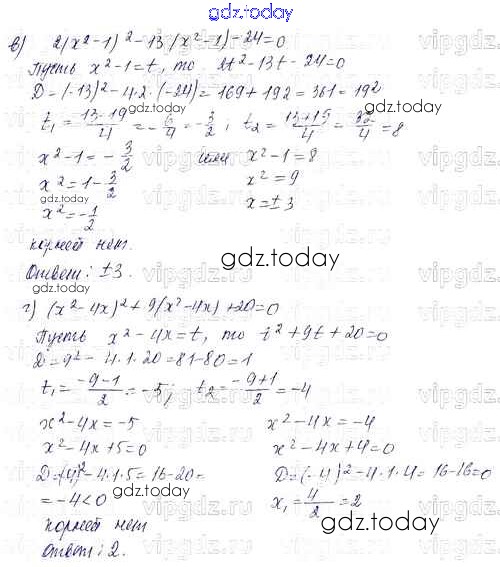 gdz.today
в) 2(x²-1)²-13(x²-1)-24=0
Пусть x²-1=t, то 2t²-13t-24=0
D=(-13)²-4·2·(-24)=169+192=361=19²
t₁=(13-19)/4=-6/4=-3/2; t₂=(13+19)/4=32/4=8
x²-1=-3/2 или x²-1=8
x²=1-3/2 x²=9
x²=-1/2 x=±3
корней нет.
Ответ: ±3.
г) (x²-4x)²+9(x²-4x)+20=0
Пусть x²-4x=t, то t²+9t+20=0
D=9²-4·1·20=81-80=1
t₁=(-9-1)/2=-5; t₂=(-9+1)/2=-4
x²-4x=-5 x²-4x=-4
x²-4x+5=0 x²-4x+4=0
D=(4)²-4·1·5=16-20= D=(-4)²-4·1·4=16-16=0
=-4<0 x₁=4/2=2
корней нет
Ответ: 2.
gdz.today